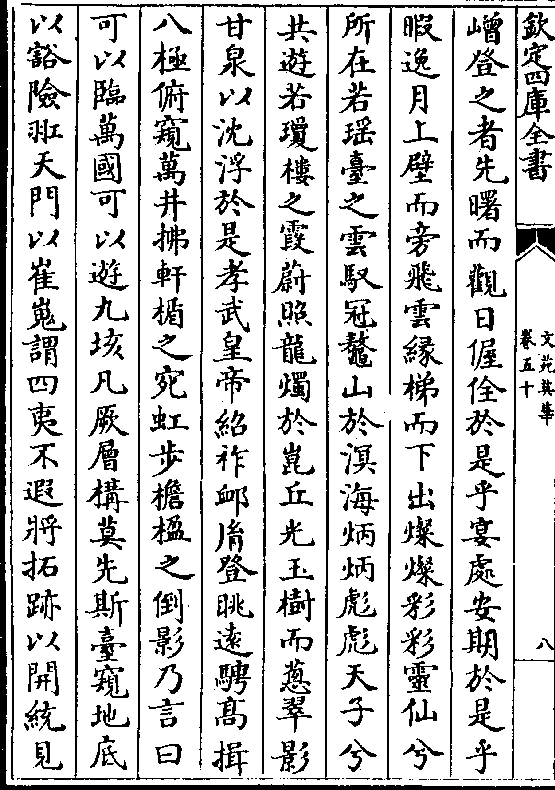 欽定四庫全書
文苑英華
卷五十
八
嶒登之者先曙而觀日偓佺於是乎宴處安期於是乎
暇逸月上壁而旁飛雲緣梯而下出燦燦彩彩靈仙兮
所在若瑤臺之雲馭冠鼇山於溟海炳炳彪彪天子兮
共遊若瓊樓之霞蔚照龍燭於崑丘光玉樹而葱翠影
甘泉以沈浮於是孝武皇帝紹祚䘏胤登眺遠騁髙揖
八極俯窺萬井拂軒楯之宛虹步檐楹之倒影乃言曰
可以臨萬國可以遊九垓凡厥層構莫先斯臺窺地底
以豁險羾天門以崔嵬謂四夷不遐將拓跡以開統見